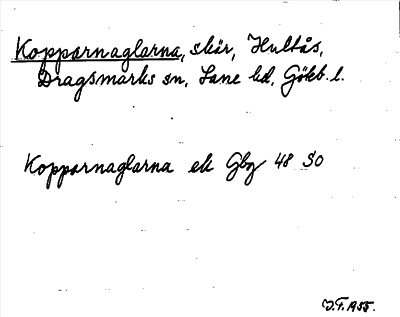 Kopparnaglarna, skär, Hultås,
Dragsmarks sn, Lane hd, Götb. l.
Kopparnaglarna ek Gbg 48 SO
J.F. 1955.